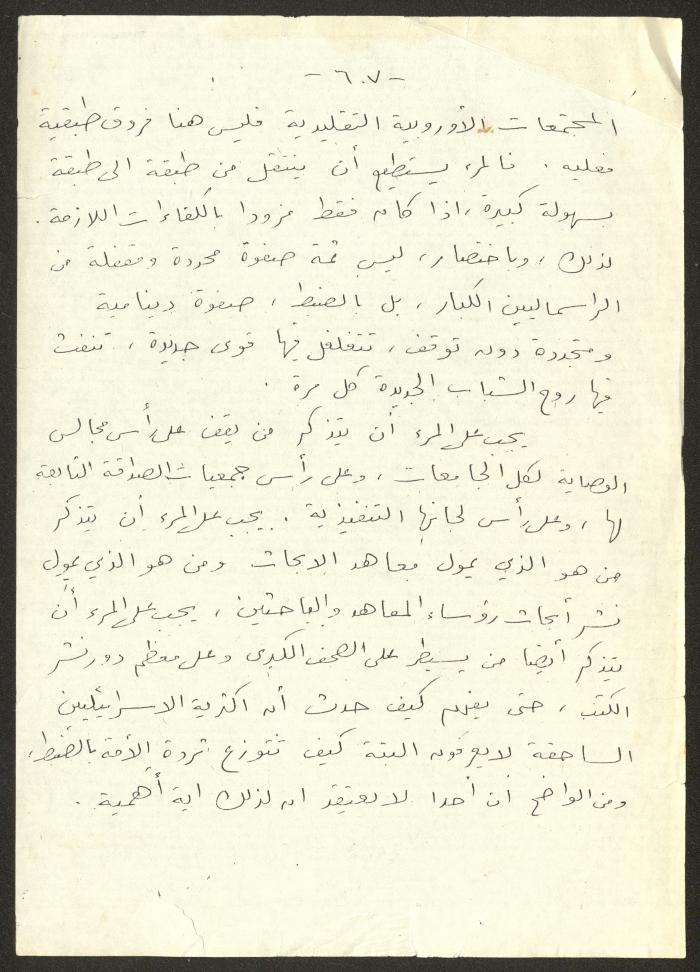 - ٦٠٧ -
المجتمعات الأوروبية التقليدية فليس هنا فروق طبقية
فعليه . فالمرء يستطيع أن ينتقل من طبقة الى طبقة
بسهولة كبيرة ، اذا كان فقط مزودا بالكفاءات اللازمة .
لذلك ، وباختصار ، ليس ثمة صفوة محددة ومقفلة من
الراسماليين الكبار ، بل بالضبط ، صفوة دينامية
ومتجددة دون توقف ، تتغلغل فيها قوى جديدة ، تنفث
فيها روح الشباب الجديدة كل مرة .
يجب على المرء أن يتذكر من يقف على رأس مجالس
الوصاية لكل الجامعات ، وعلى رأس جمعيات الصداقة التابعة
لها ، وعلى رأس لجانها التنفيذية . يجب على المرء أن يتذكر
من هو الذي يمول معاهد الابحاث ومن هو الذي يمول
نشر أبحاث رؤساء المعاهد والباحثين ، يجب على المرء أن
يتذكر أيضا من يسيطر على الصحف الكبرى وعلى معظم دور نشر
الكتب ، حتى يفهم كيف حدث أن اكثرية الاسرائيليين
الساحقة لا يعرفون البتة كيف تتوزع ثروة الأمة بالضبط ،
ومن الواضح ان أحدا لا يعتقد ان لذلك اية أهمية .